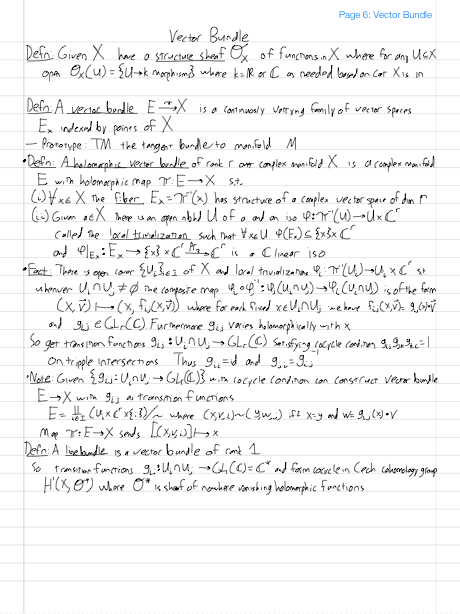 Page 6: Vector Bundle
Vector Bundle
Defn: Given X have a structure sheaf O_X of functions on X where for any U⊆X
open O_X(U) = {U→k morphism} where k=ℝ or ℂ as needed based on cat X is in
Defn: A vector bundle E →^π X is a continuously varying family of vector spaces
E_x indexed by points of X
— Prototype: TM the tangent bundle to manifold M
•Defn: A holomorphic vector bundle of rank r over complex manifold X is a complex manifold
E with holomorphic map π: E→X s.t.
(i) ∀x∈X the fiber E_x = π⁻¹(x) has structure of a complex vector space of dim r
(ii) Given a∈X there is an open nbhd U of a and an iso φ: π⁻¹(U)→U×ℂ^r
called the local trivialization such that ∀x∈U φ(E_x) ⊆ {x}×ℂ^r
and φ|_{E_x}: E_x → {x}×ℂ^r → ℂ^r is a ℂ linear iso
•Fact: There is open cover {U_i}_{i∈I} of X and local trivializations φ_i: π⁻¹(U_i)→U_i×ℂ^r s.t.
whenever U_i∩U_j ≠ ∅ the composite map φ_i∘φ_j⁻¹: φ_j(U_i∩U_j)→φ_i(U_i∩U_j) is of the form
(x, v⃗) ↦ (x, f_{ij}(x,v⃗)) where for each fixed x∈U_i∩U_j we have f_{ij}(x,v⃗) = g_{ij}(x)·v⃗
and g_{ij} ∈ GL_r(ℂ) Furthermore g_{ij} varies holomorphically with x
So get transition functions g_{ij}: U_i∩U_j → GL_r(ℂ) satisfying cocycle condition g_{ij}g_{jk}g_{ki}=1
on triple intersections Thus g_{ii}=id and g_{ij}=g_{ji}⁻¹
•Note: Given {g_{ij}: U_i∩U_j → GL_r(ℂ)} with cocycle condition can construct vector bundle
E→X with g_{ij} as transition functions
E = ∐_{i∈I} (U_i×ℂ^r×{i})/~ where (x,v,i)~(y,w,j) iff x=y and w=g_{ij}(x)·v
Map π: E→X sends [(x,v,i)] ↦ x
Defn: A line bundle is a vector bundle of rank 1
So transition functions g_{ij}: U_i∩U_j → GL_1(ℂ)=ℂ* and form cocycle in Cech cohomology group
H¹(X, O*) where O* is sheaf of nowhere vanishing holomorphic functions